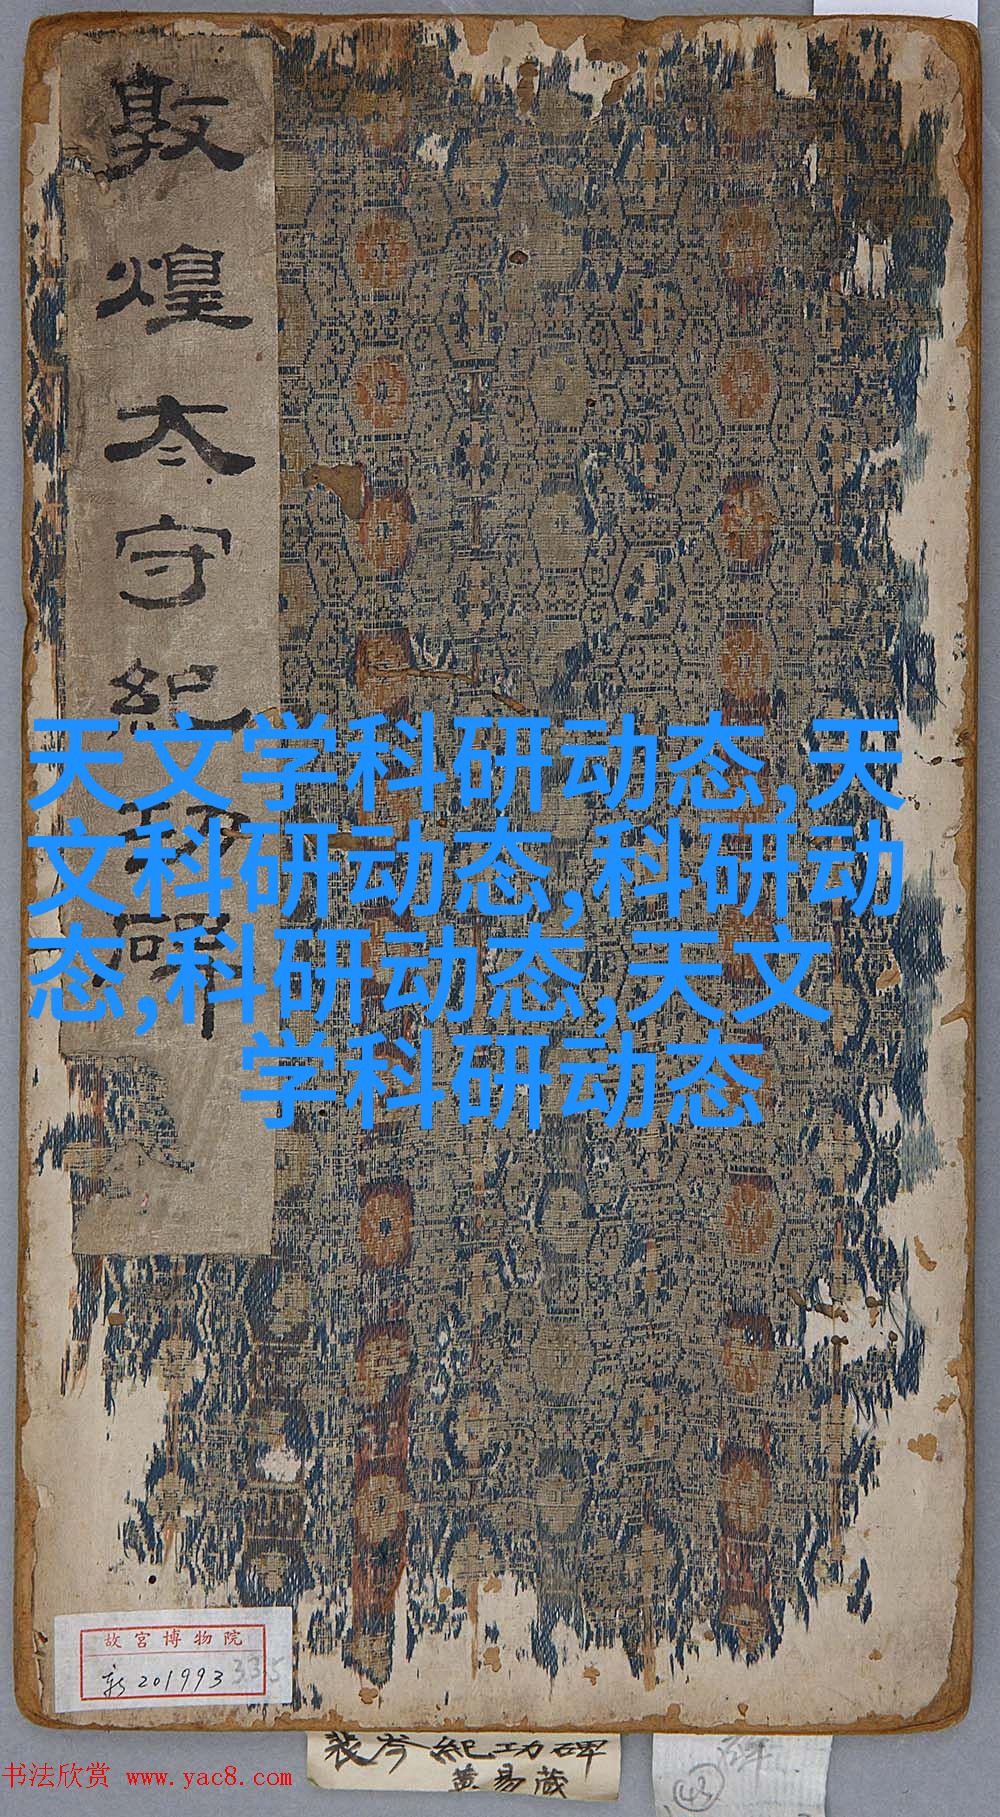 敦煌太守紀功碑
天文学科研动态,天
文科研动态,科研动
态,科研动态,天文
学科研动态
故宫博物院
新201993
335
裴岑紀功碑
黄易藏
43
书法欣赏 www.yac8.com